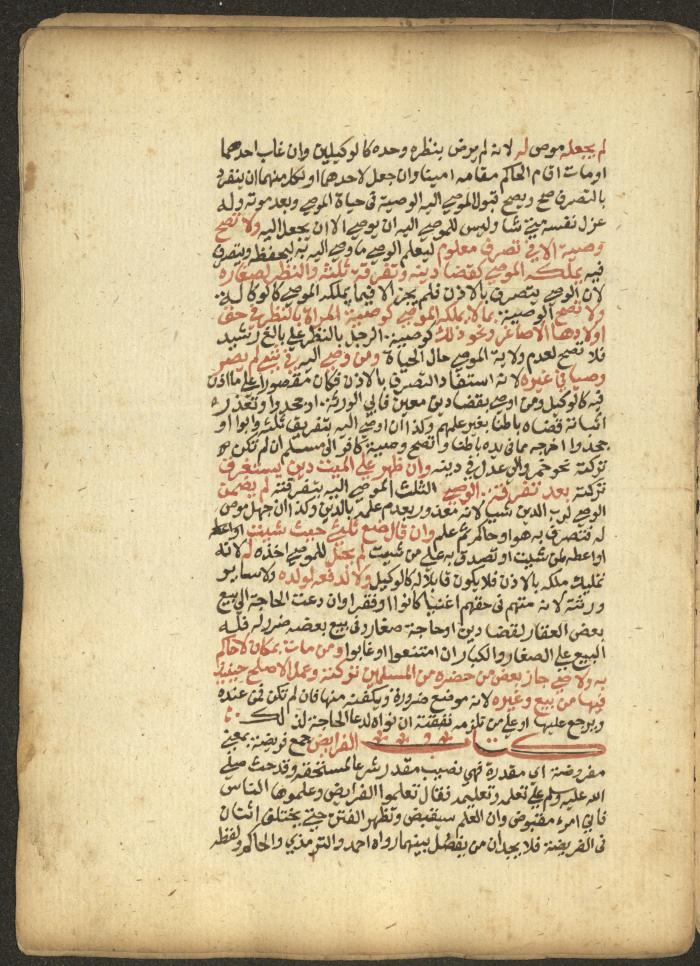 لم يجعله موص له لانه لم يرض بنظره وحده كالوكيلين وان غاب احدهما
او مات اقام الحاكم مقامه امينا وان جعل لاحدهما او لكل منهما ان ينفرد
بالتصرف صح ويصح قبول الموصي اليه الوصية في حياة الموصي وبعد موته وله
عزل نفسه متى شا وليس للموصي اليه ان يوصي الا ان يجعل اليه ولا تصح
وصية الا في تصرف معلوم ليعلم الوصي ما وصي اليه به ليحفظه ويتصرف
فيه يملكه الموصي كقضا دينه وتفرقة ثلثه والنظر لصغاره
لان الوصي يتصرف بالاذن فلم يجز الا فيما يملكه الموصي كالوكالة
ولا تصح الوصية بما لا يملكه الموصي كوصية المراة بالنظر في حق
اولادها الاصاغر ونحو ذلك كوصية الرجل بالنظر على بالغ رشيد
فلا تصح لعدم ولاية الموصي حال الحياة ومن وصي اليه في شي لم يصر
وصيا في غيره لانه استفاد التصرف بالاذن فكان مقصورا على ما اذن
فيه كالوكيل ومن اوصي بقضا دين معين فابي الورثة او جحدوا وتعذر
اثباته قضاه باطنا بغير علمهم وكذا ان اوصي اليه بتفريق ثلثه وابوا او
جحدوا اخرجه مما في يده باطنا وتصح وصية كافر الى مسلم ان لم تكن
تركته نحو خمر والى عدل في دينه وان ظهر على الميت دين يستغرق
تركته بعد تفرقة الوصي الثلث الموصي اليه بتفرقته لم يضمن
الوصي لرب الدين شيا لانه معذور بعدم علمه بالدين وكذا ان جهل موص
له فتصرف به هو او حاكم ثم علم وان قال ضع ثلثي حيث شيت او اعطه
او اعطه لمن شيت او تصدق به على من شيت لم يحل للموصي اخذه له لانه
تمليك ملكه بالاذن فلا يكون قابلا له كالوكيل ولا لدفعه لولده ولا ساير
ورثته لانه متهم في حقهم اغنيا كانوا او فقرا وان دعت الحاجة الى بيع
بعض العقار لقضا دين او حاجة صغار وفي بيع بعضه ضرر له فله
البيع على الصغار والكبار ان امتنعوا او غابوا ومن مات بمكان لا حاكم
به ولا وصي جاز بعض من حضره من المسلمين تركته وعمل الاصلح حينيذ
فيها من بيع وغيره لانه موضع ضرورة ويكفنه منها فان لم تكن فمن عنده
ويرجع عليها او على من تلزمه نفقته ان نواه لدعا الحاجة لذلك
كتاب الفرايض جمع فريضة بمعنى
مفروضة اى مقدرة فهي نصيب مقدر شرعا لمستحقه وقد حث صلى
الله عليه وسلم على تعلمه وتعليمه فقال تعلموا الفرايض وعلموها الناس
فاني امرء مقبوض وان العلم سيقبض وتظهر الفتن حتى يختلف اثنان
في الفريضة فلا يجدان من يفصل بينهما رواه احمد والترمذي والحاكم ولفظه